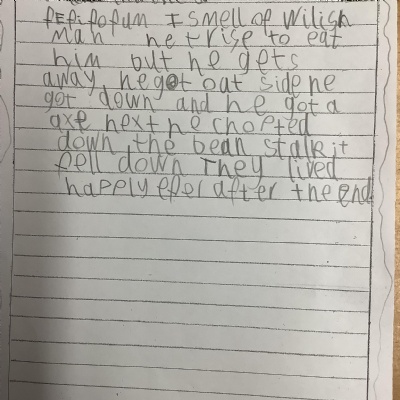 fEfifofum I smell of Wilish
Man he trise to eat
him but he gets
away he got out side he
got down and he got a
axe next he chopted
down the bean stalk it
fell down They lived
happly efer after the end